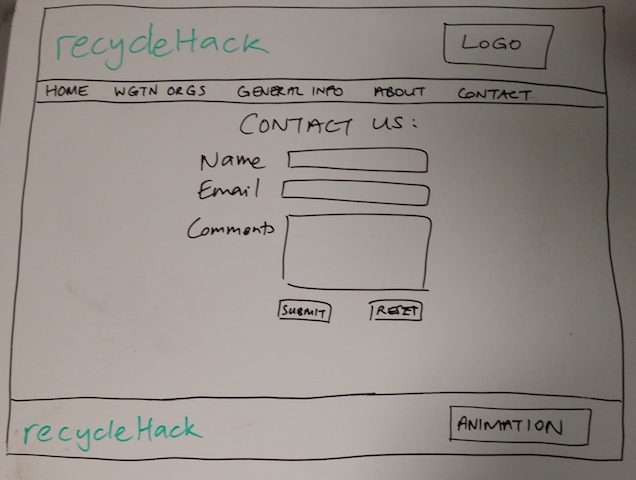 recycleHack LOGO
HOME WGTN ORGS GENERAL INFO ABOUT CONTACT
CONTACT US:
Name
Email
Comments
SUBMIT RESET
recycleHack ANIMATION